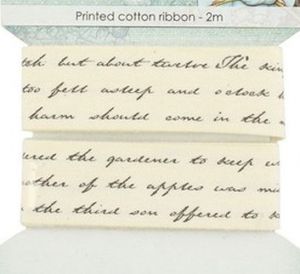 Printed cotton ribbon - 2m
but about twelve The
too fell asleep and o'clock
harm should come in the
the gardener to keep
of the apples was
the third son offered to